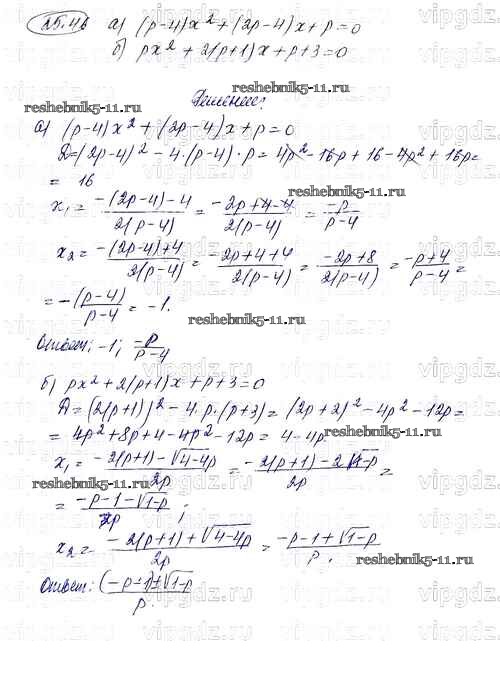 25.46 а) (p-4)x² + (2p-4)x + p = 0
б) px² + 2(p+1)x + p+3 = 0
reshebnik5-11.ru
Решение:
reshebnik5-11.ru
а) (p-4)x² + (2p-4)x + p = 0
D = (2p-4)² - 4·(p-4)·p = 4p² - 16p + 16 - 4p² + 16p =
= 16
x₁ = (-(2p-4)-4)/(2(p-4)) = (-2p+4-4)/(2(p-4)) = -p/(p-4)
x₂ = (-(2p-4)+4)/(2(p-4)) = (-2p+4+4)/(2(p-4)) = (-2p+8)/(2(p-4)) = (-p+4)/(p-4) =
= -(p-4)/(p-4) = -1.
reshebnik5-11.ru
Ответ: -1; -p/(p-4)
reshebnik5-11.ru
б) px² + 2(p+1)x + p+3 = 0
D = (2(p+1))² - 4·p·(p+3) = (2p+2)² - 4p² - 12p =
= 4p² + 8p + 4 - 4p² - 12p = 4 - 4p
reshebnik5-11.ru
x₁ = (-2(p+1) - √(4-4p))/(2p) = (-2(p+1) - 2√(1-p))/(2p) =
reshebnik5-11.ru
= (-p-1-√(1-p))/p ;
x₂ = (-2(p+1) + √(4-4p))/(2p) = (-p-1+√(1-p))/p .
reshebnik5-11.ru
Ответ: (-p-1)±√(1-p)/p.
reshebnik5-11.ru
vipgdz.com